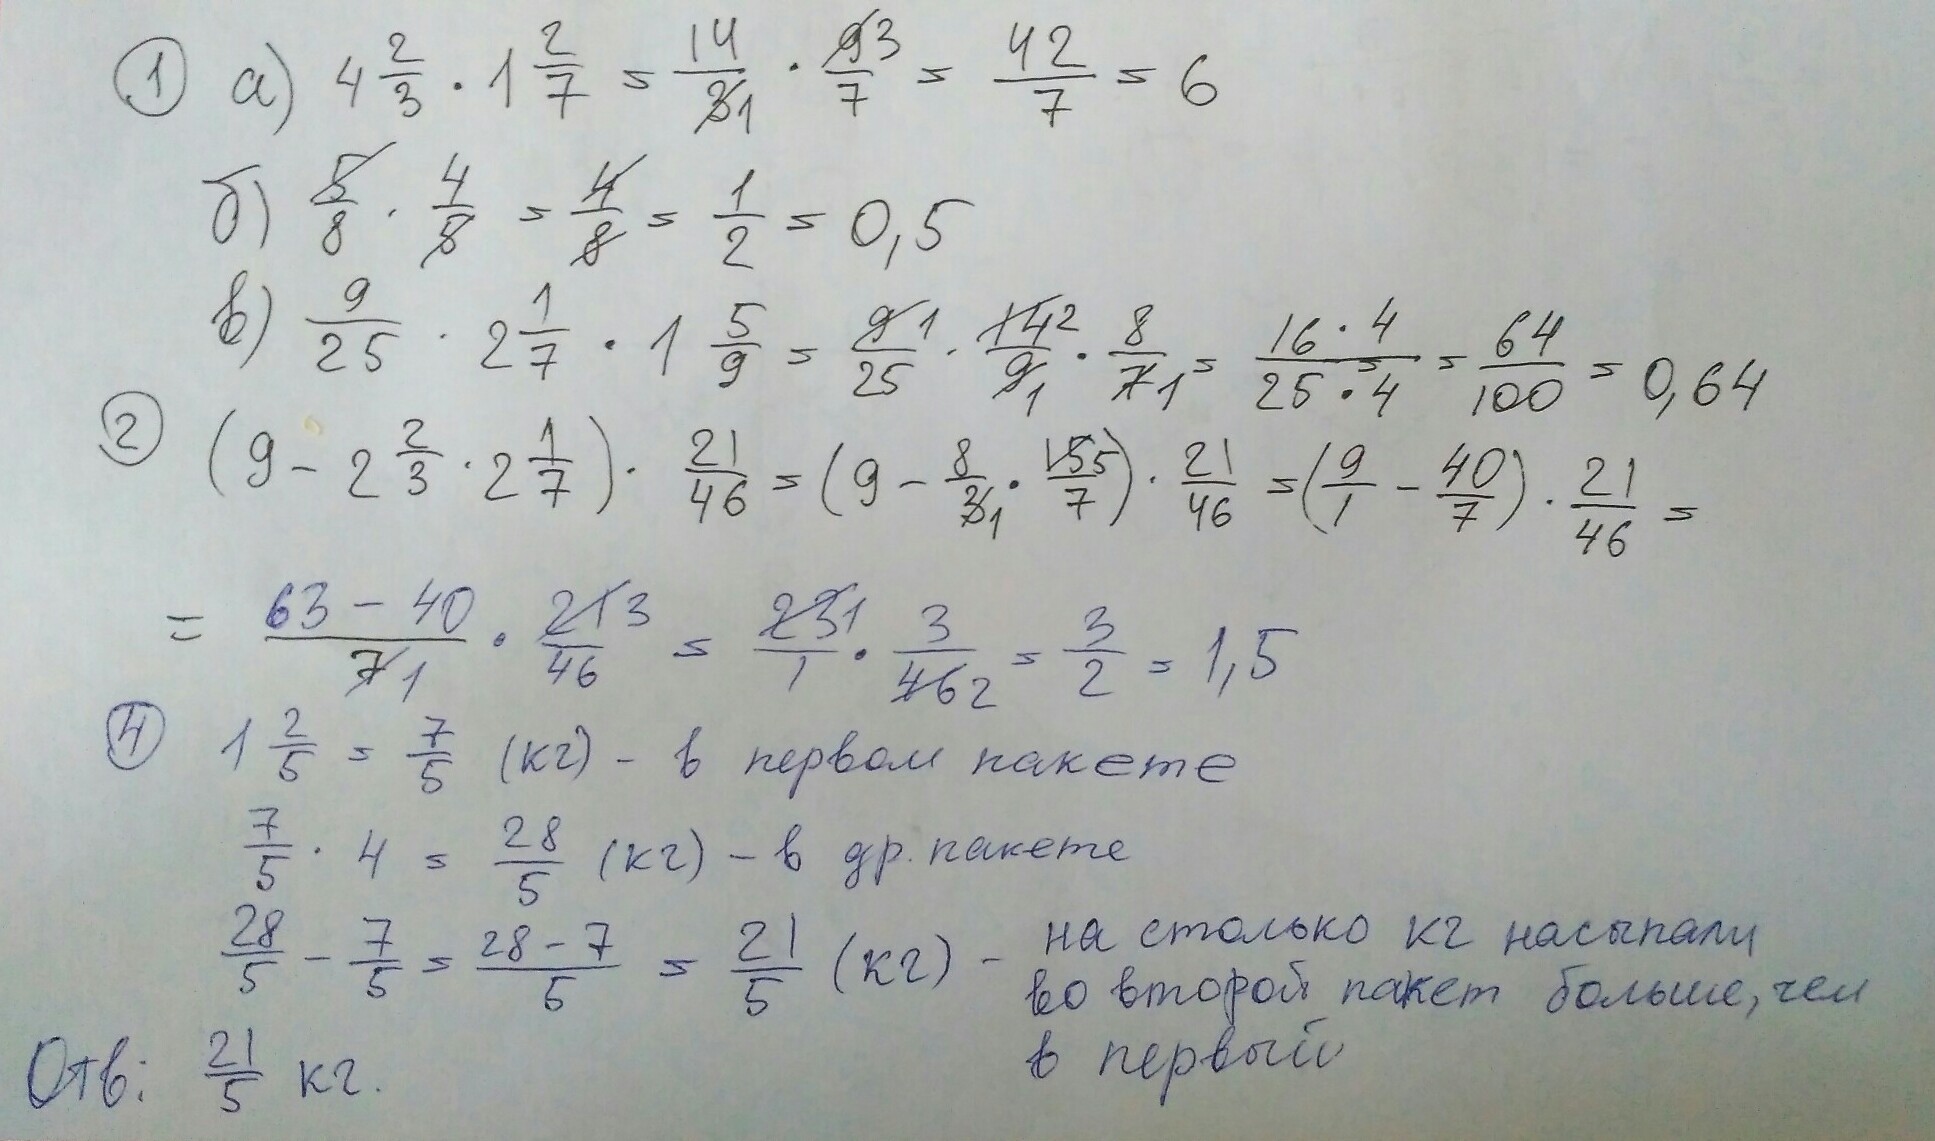 ① а) 4 2/3 · 1 2/7 = 14/3̶1 · 9̶3/7 = 42/7 = 6
б) 5̶/8 · 4/5̶ = 4̶/8̶ = 1/2 = 0,5
в) 9/25 · 2 1/7 · 1 5/9 = 9̶1/25 · 1̶4̶2/9̶1 · 8/7̶1 = 16·4/25·4 = 64/100 = 0,64
② (9 - 2 2/3 · 2 1/7) · 21/46 = (9 - 8/3̶1 · 1̶5̶5/7) · 21/46 = (9/1 - 40/7) · 21/46 =
= 63 - 40/7̶1 · 2̶1̶3/46 = 2̶3̶1/1 · 3/4̶6̶2 = 3/2 = 1,5
④ 1 2/5 = 7/5 (кг) - в первом пакете
7/5 · 4 = 28/5 (кг) - в др. пакете
28/5 - 7/5 = 28-7/5 = 21/5 (кг) - на столько кг насыпали
во второй пакет больше, чем
в первый
Отв: 21/5 кг.